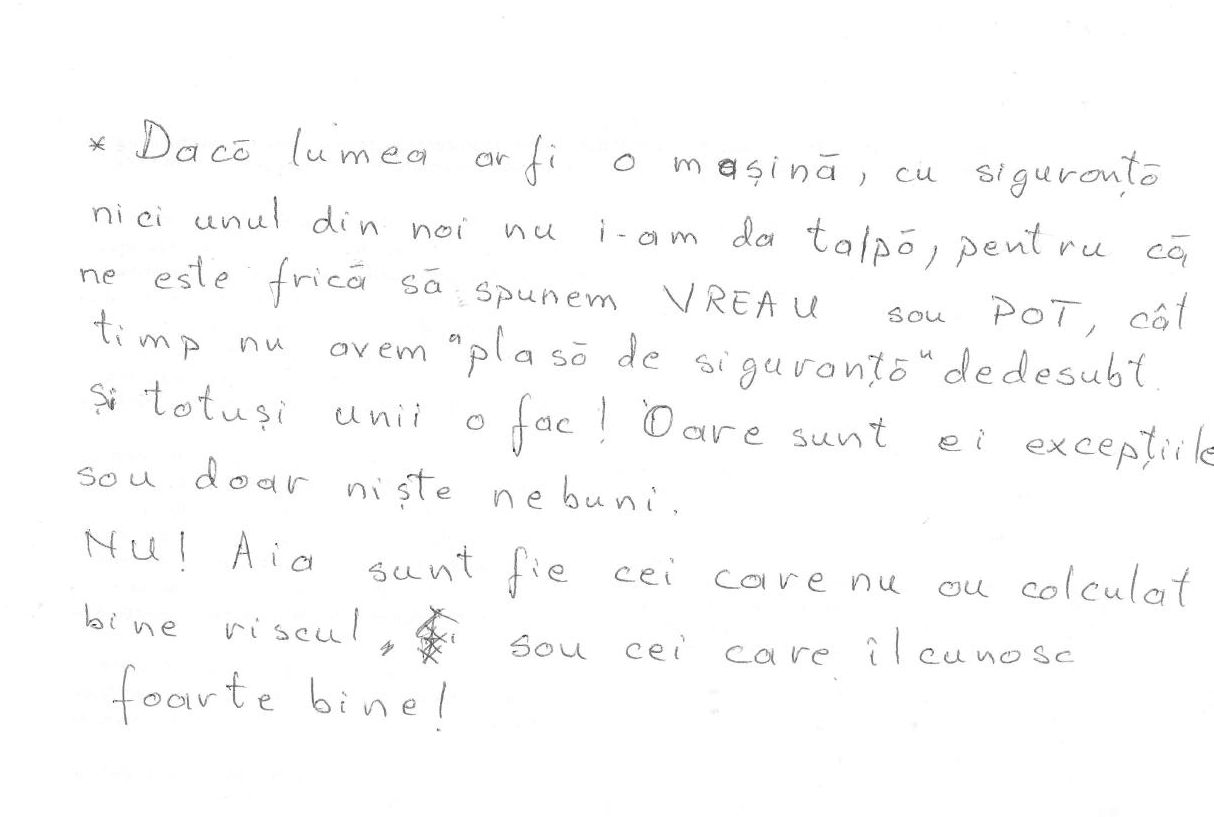 * Dacă lumea ar fi o mașină, cu siguranță
nici unul din noi nu i-am da talpă, pentru că
ne este frică să spunem VREAU sau POT, cât
timp nu avem "plasă de siguranță" dedesubt.
și totuși unii o fac! Oare sunt ei excepțiile
sau doar niște nebuni.
NU! Aia sunt fie cei care nu au calculat
bine riscul, sau cei care îl cunosc
foarte bine!